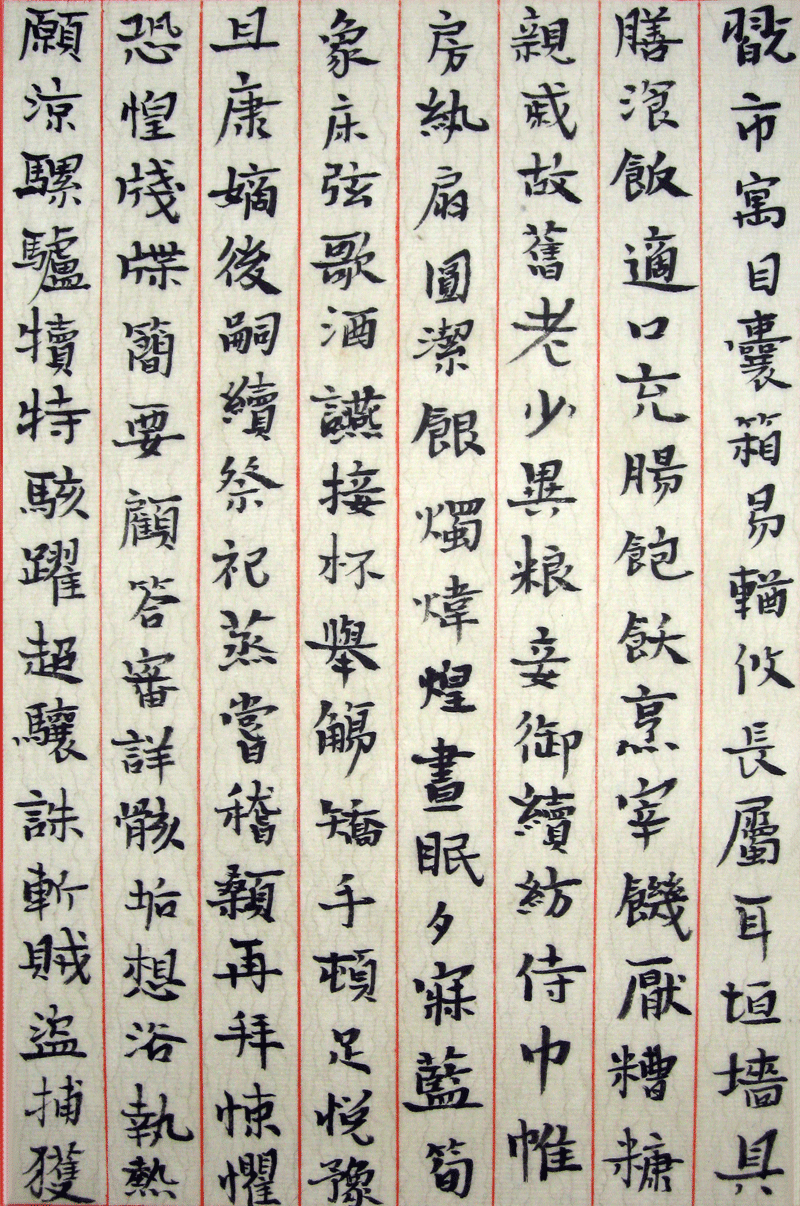 翫市寓目囊箱易輶攸長屬耳垣墻具
膳湌飯適口充腸飽飫烹宰饑厭糟糠
親戚故舊老少異粮妾御續紡侍巾帷
房紈扇圓潔銀燭煒煌晝眠夕寐藍筍
象床弦歌酒讌接杯舉觴矯手頓足悅豫
且康嫡後嗣續祭祀蒸嘗稽顙再拜悚懼
恐惶牋牒簡要顧答審詳骸垢想浴執熱
願涼騾驢犢特駭躍超驤誅斬賊盜捕獲